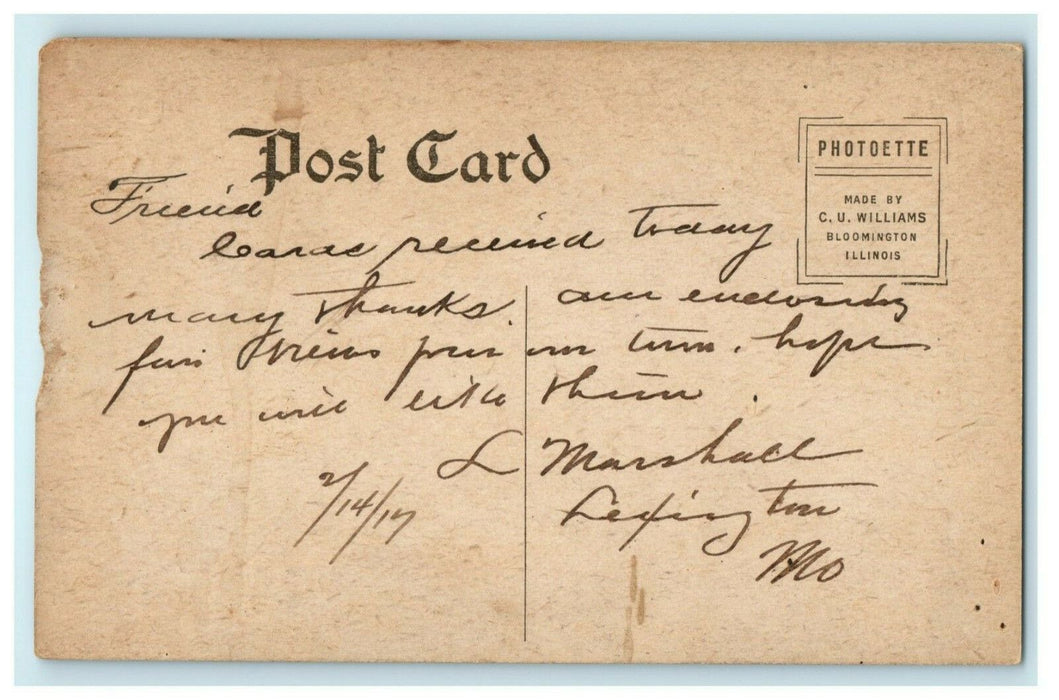 Post Card
PHOTOETTE
MADE BY
C. U. WILLIAMS
BLOOMINGTON
ILLINOIS
Friend
Cards received Today
many thanks. am enclosing
few views from our town. hope
you will like them.
L Marshall
Lexington
Mo
2/14/17